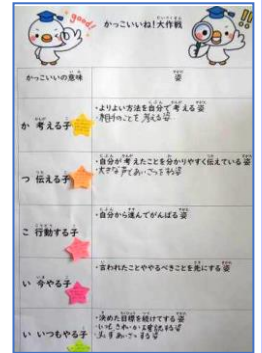 good!
かっこいいね!大作戦
かっこいいの意味
姿
か 考える子
・よりよい方法を自分で考える姿
・相手のことを考える姿
つ 伝える子
・自分が考えたことを分かりやすく伝えている姿
・大きな声であいさつをする姿
こ 行動する子
・自分から進んでがんばる姿
い 今やる子
・言われたことややるべきことを先にする姿
い いつもやる子
・決めた目標を続けてする姿